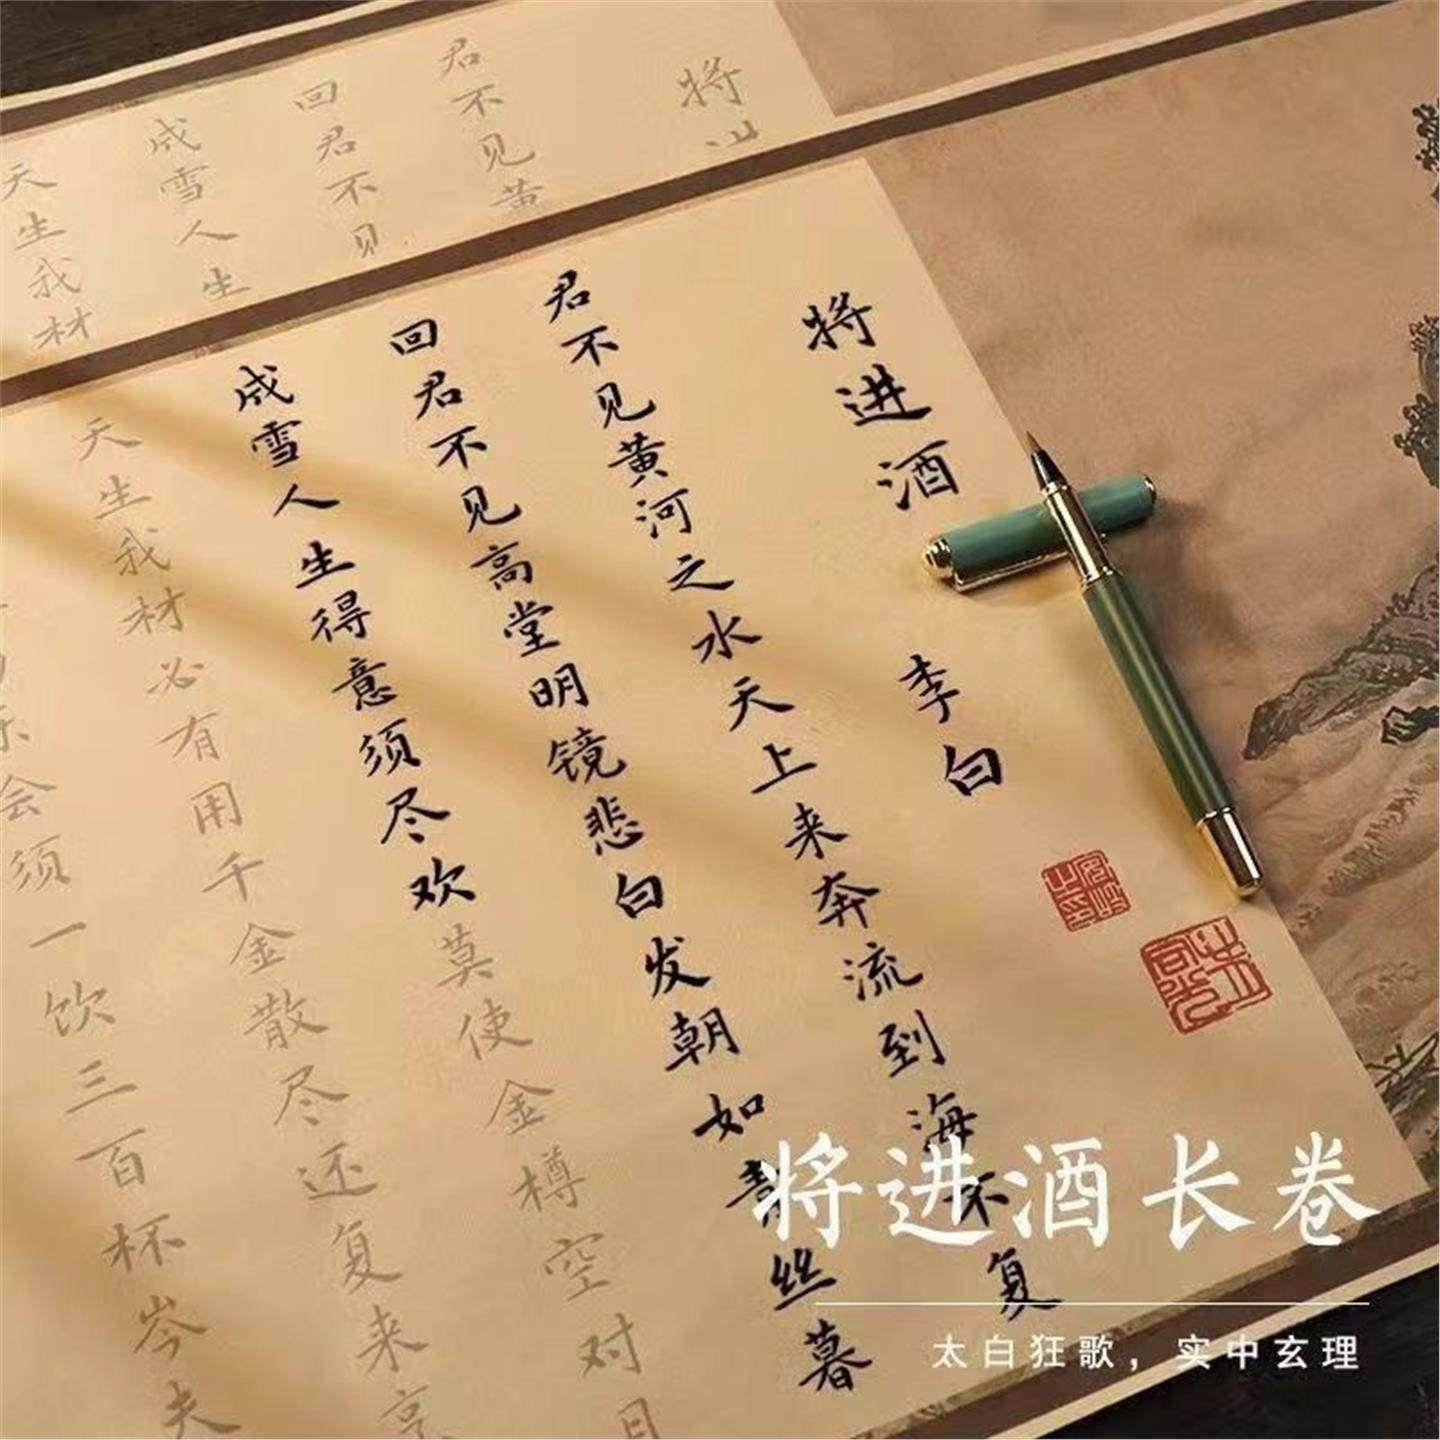 将
君不见黄
回君不见
成雪人生
天生我材
将进酒 李白
君不见黄河之水天上来奔流到海不复
回君不见高堂明镜悲白发朝如青丝暮
成雪人生得意须尽欢莫使金樽空对月
天生我材必有用千金散尽还复来烹
乐会须一饮三百杯岑夫
将进酒长卷
太白狂歌，实中玄理